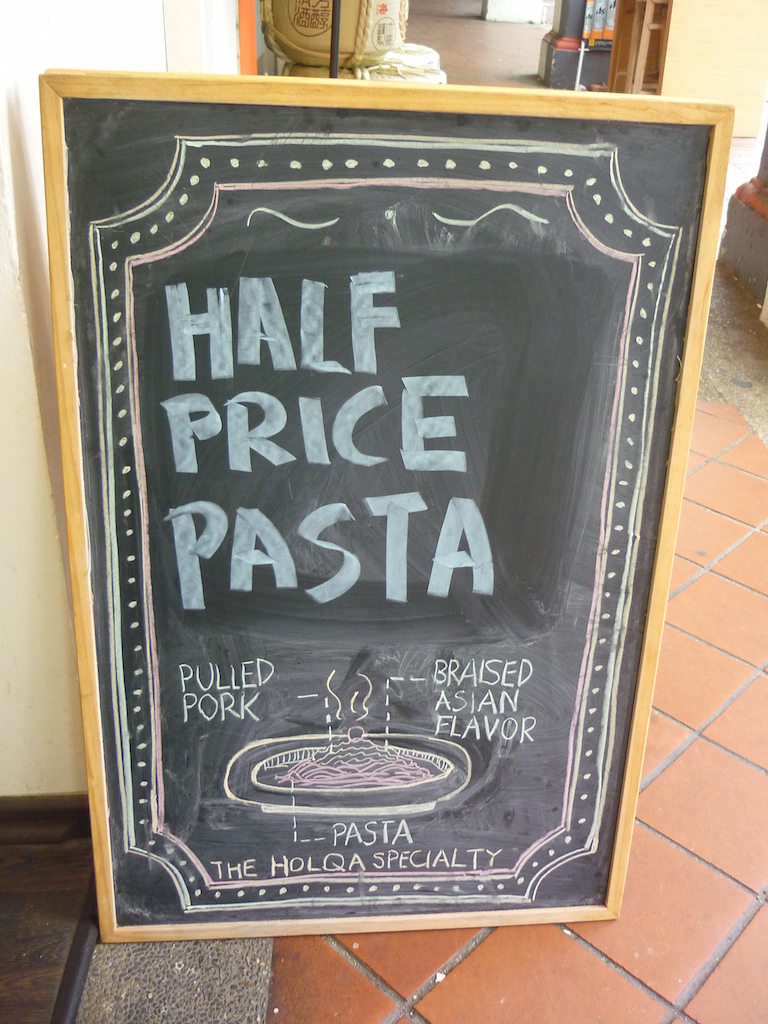 HALF
PRICE
PASTA
PULLED
PORK
BRAISED
ASIAN
FLAVOR
PASTA
THE HOLQA SPECIALTY